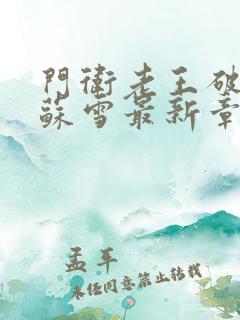 門衛老王破
蘇雪最新章
孟平
未经同意禁止转载